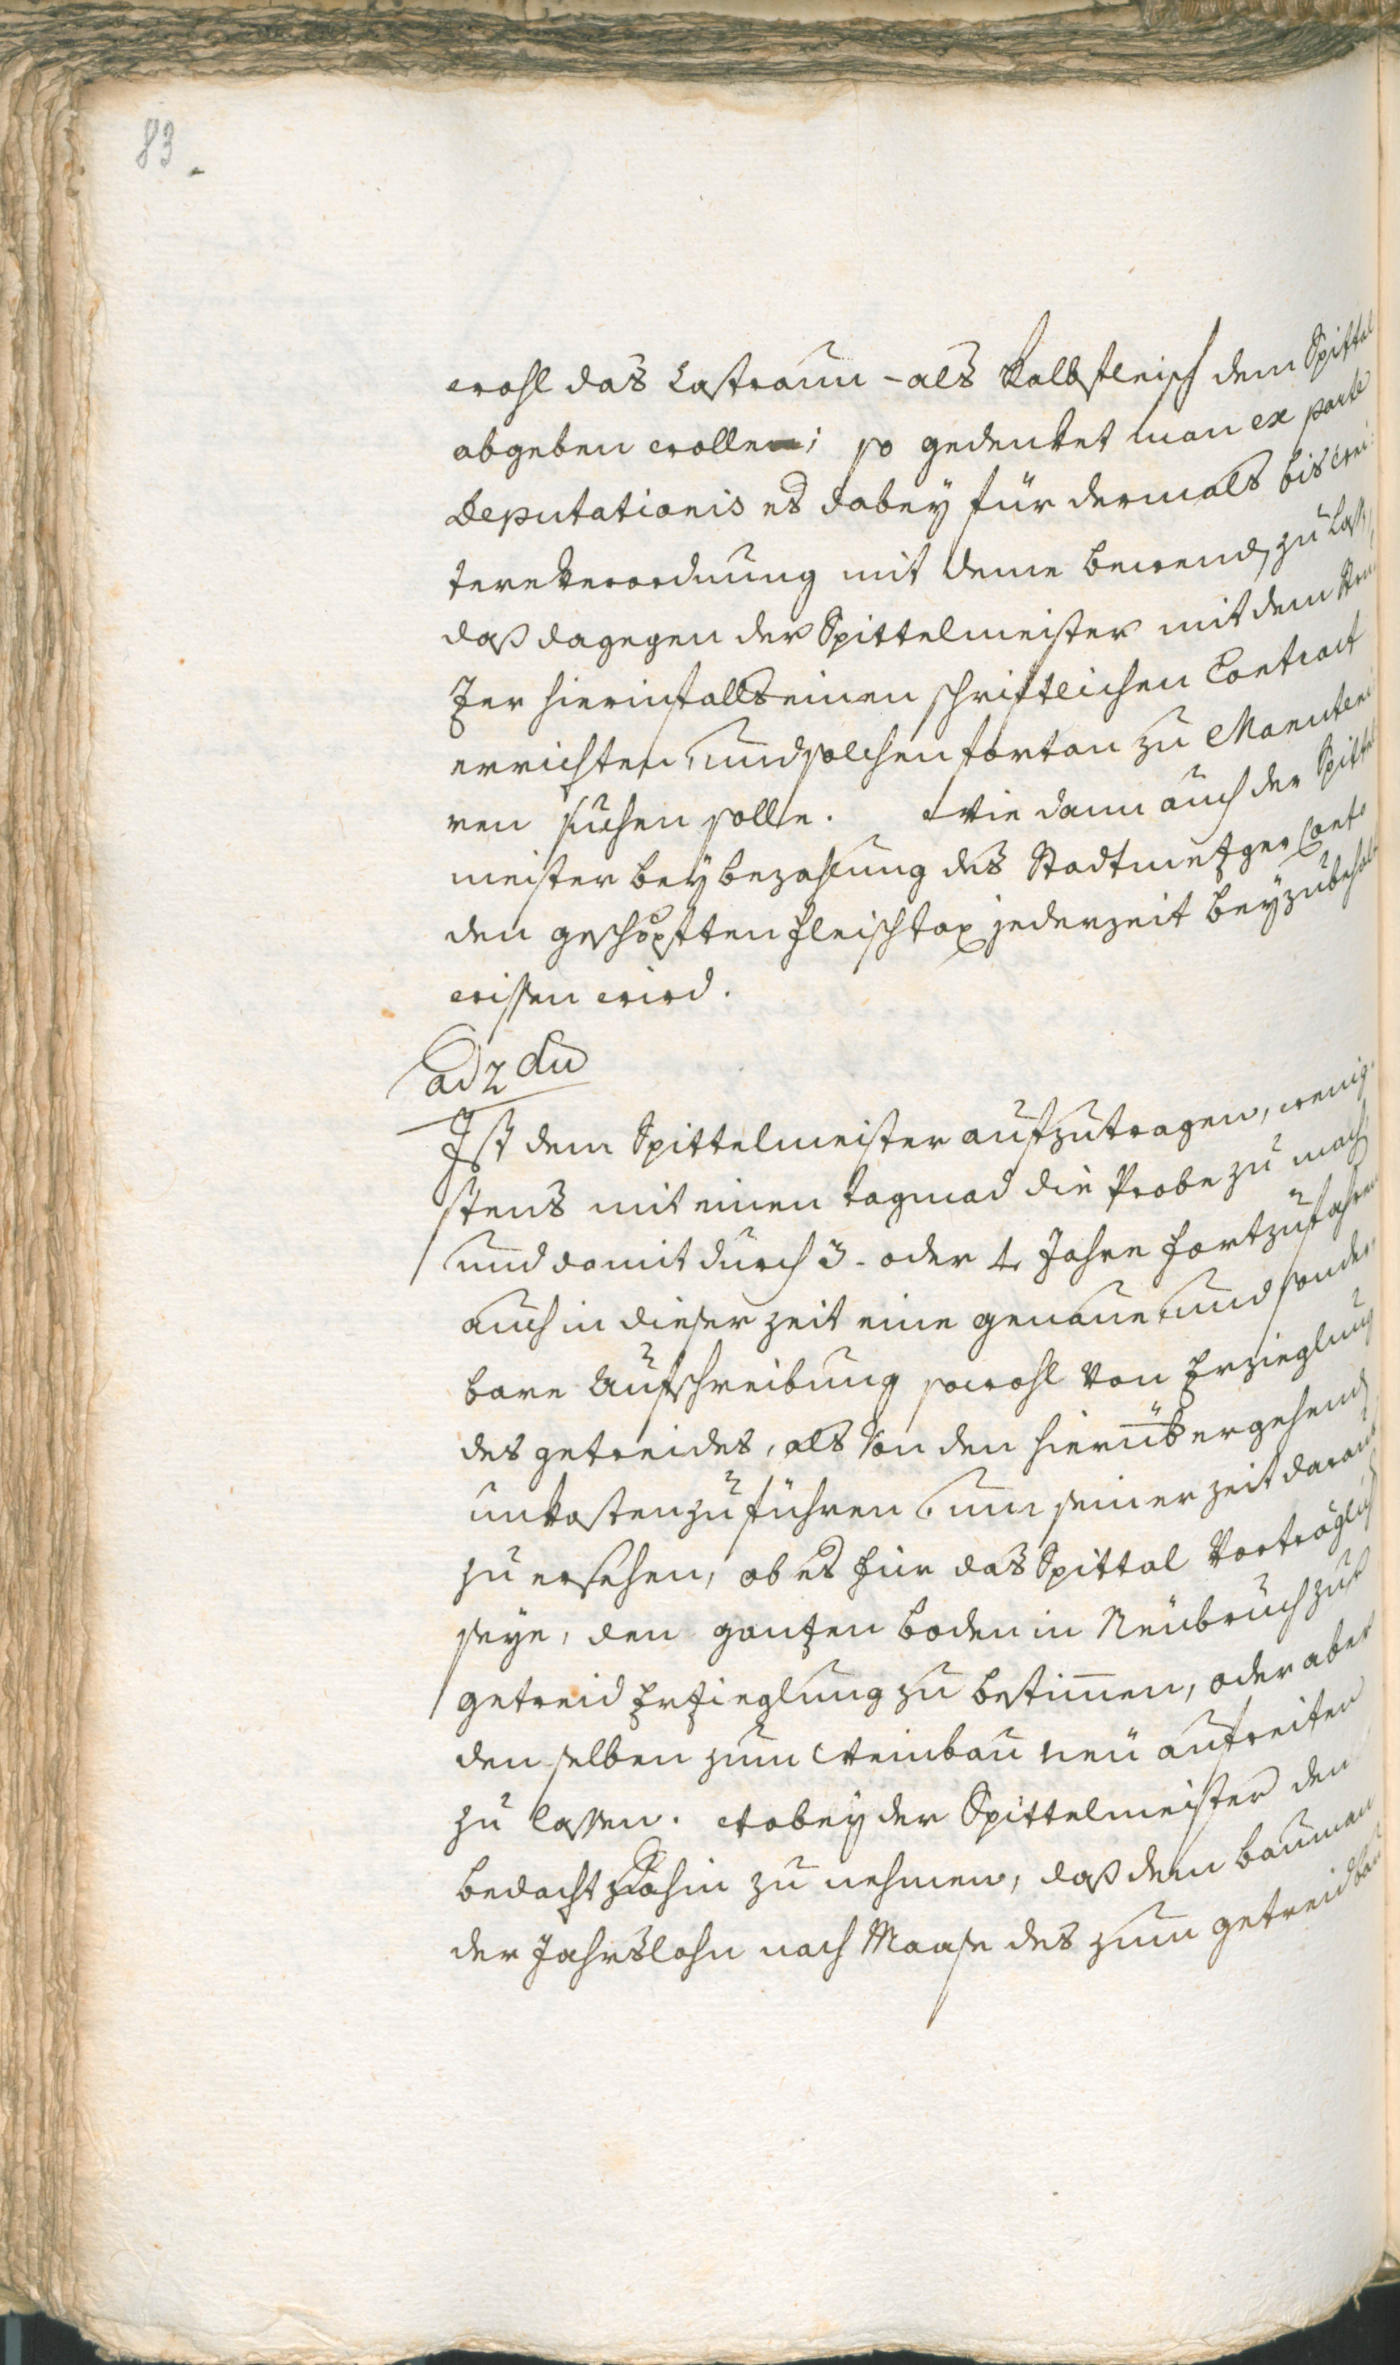 83.
wohl das Castraun- als Kalbfleisch dem Spittal
abgeben wolle; so gedenket man ex parte
Deputationis es dabey für dermals bis wei
tere Verordnung mit deme bewend zu lass
daß dagegen der Spittelmeister mit dem
zer hierinfalls einen schriftlichen Contract
errichten, und solchen fortan zu Manuteni
ren suchen solle. Wie dann auch der Spittel
meister bey bezahlung des Stadtmetzger Conto
den geschöpften fleischtax jederzeit beyzubehal
wissen wird.
ad 2dum
Ist dem Spittelmeister aufzutragen, wenig
stens mit einen tagmad die Probe zu mach
und damit durch 3- oder 4 Jahre fortzufahren
auch in dieser zeit eine genaue und sonder
bare Aufschreibung sowohl von Erzieglung
des getreides, als von den hierüber gehend
unkosten zu führen um seiner zeit daraus
zu ersehen, ob es für das Spittal Vorträglich
seye, den gantzen boden in Neübruch zur
getreid Erzieglung zu bestimmen, oder aber
denselben zum Weinbau neü aufreiten
zu lassen. Wobey der Spittelmeister den
bedacht dahin zu nehmen, daß dem bauman
der Jahrslohn nach Maase des zum getreidbau